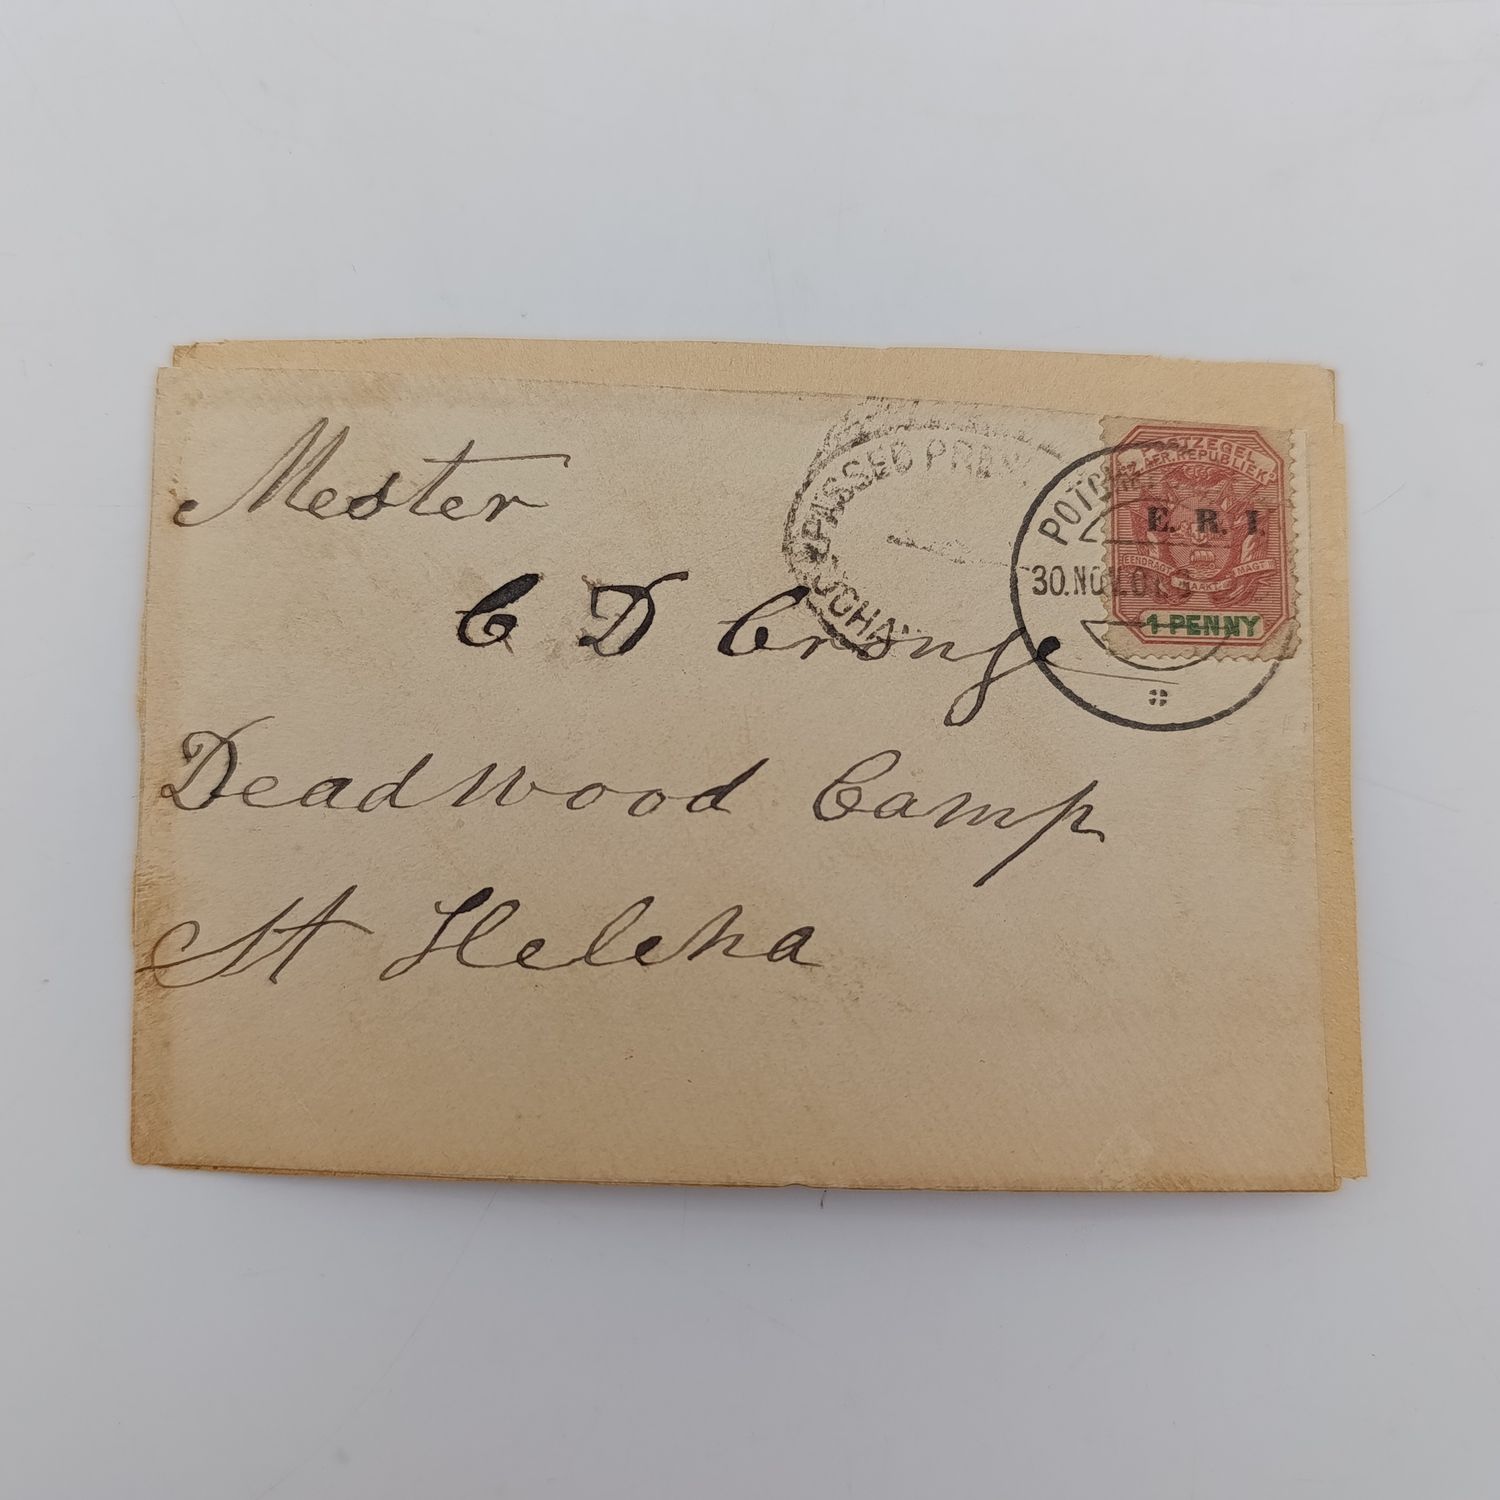 Mester
C D Cronje
Deadwood Camp
St Helena
PASSED PRE
POTCH
30.NOV.01
POSTZEGEL
Z. AFR. REPUBLIEK
E. R. I.
EENDRAGT MAAKT MAGT
1 PENNY